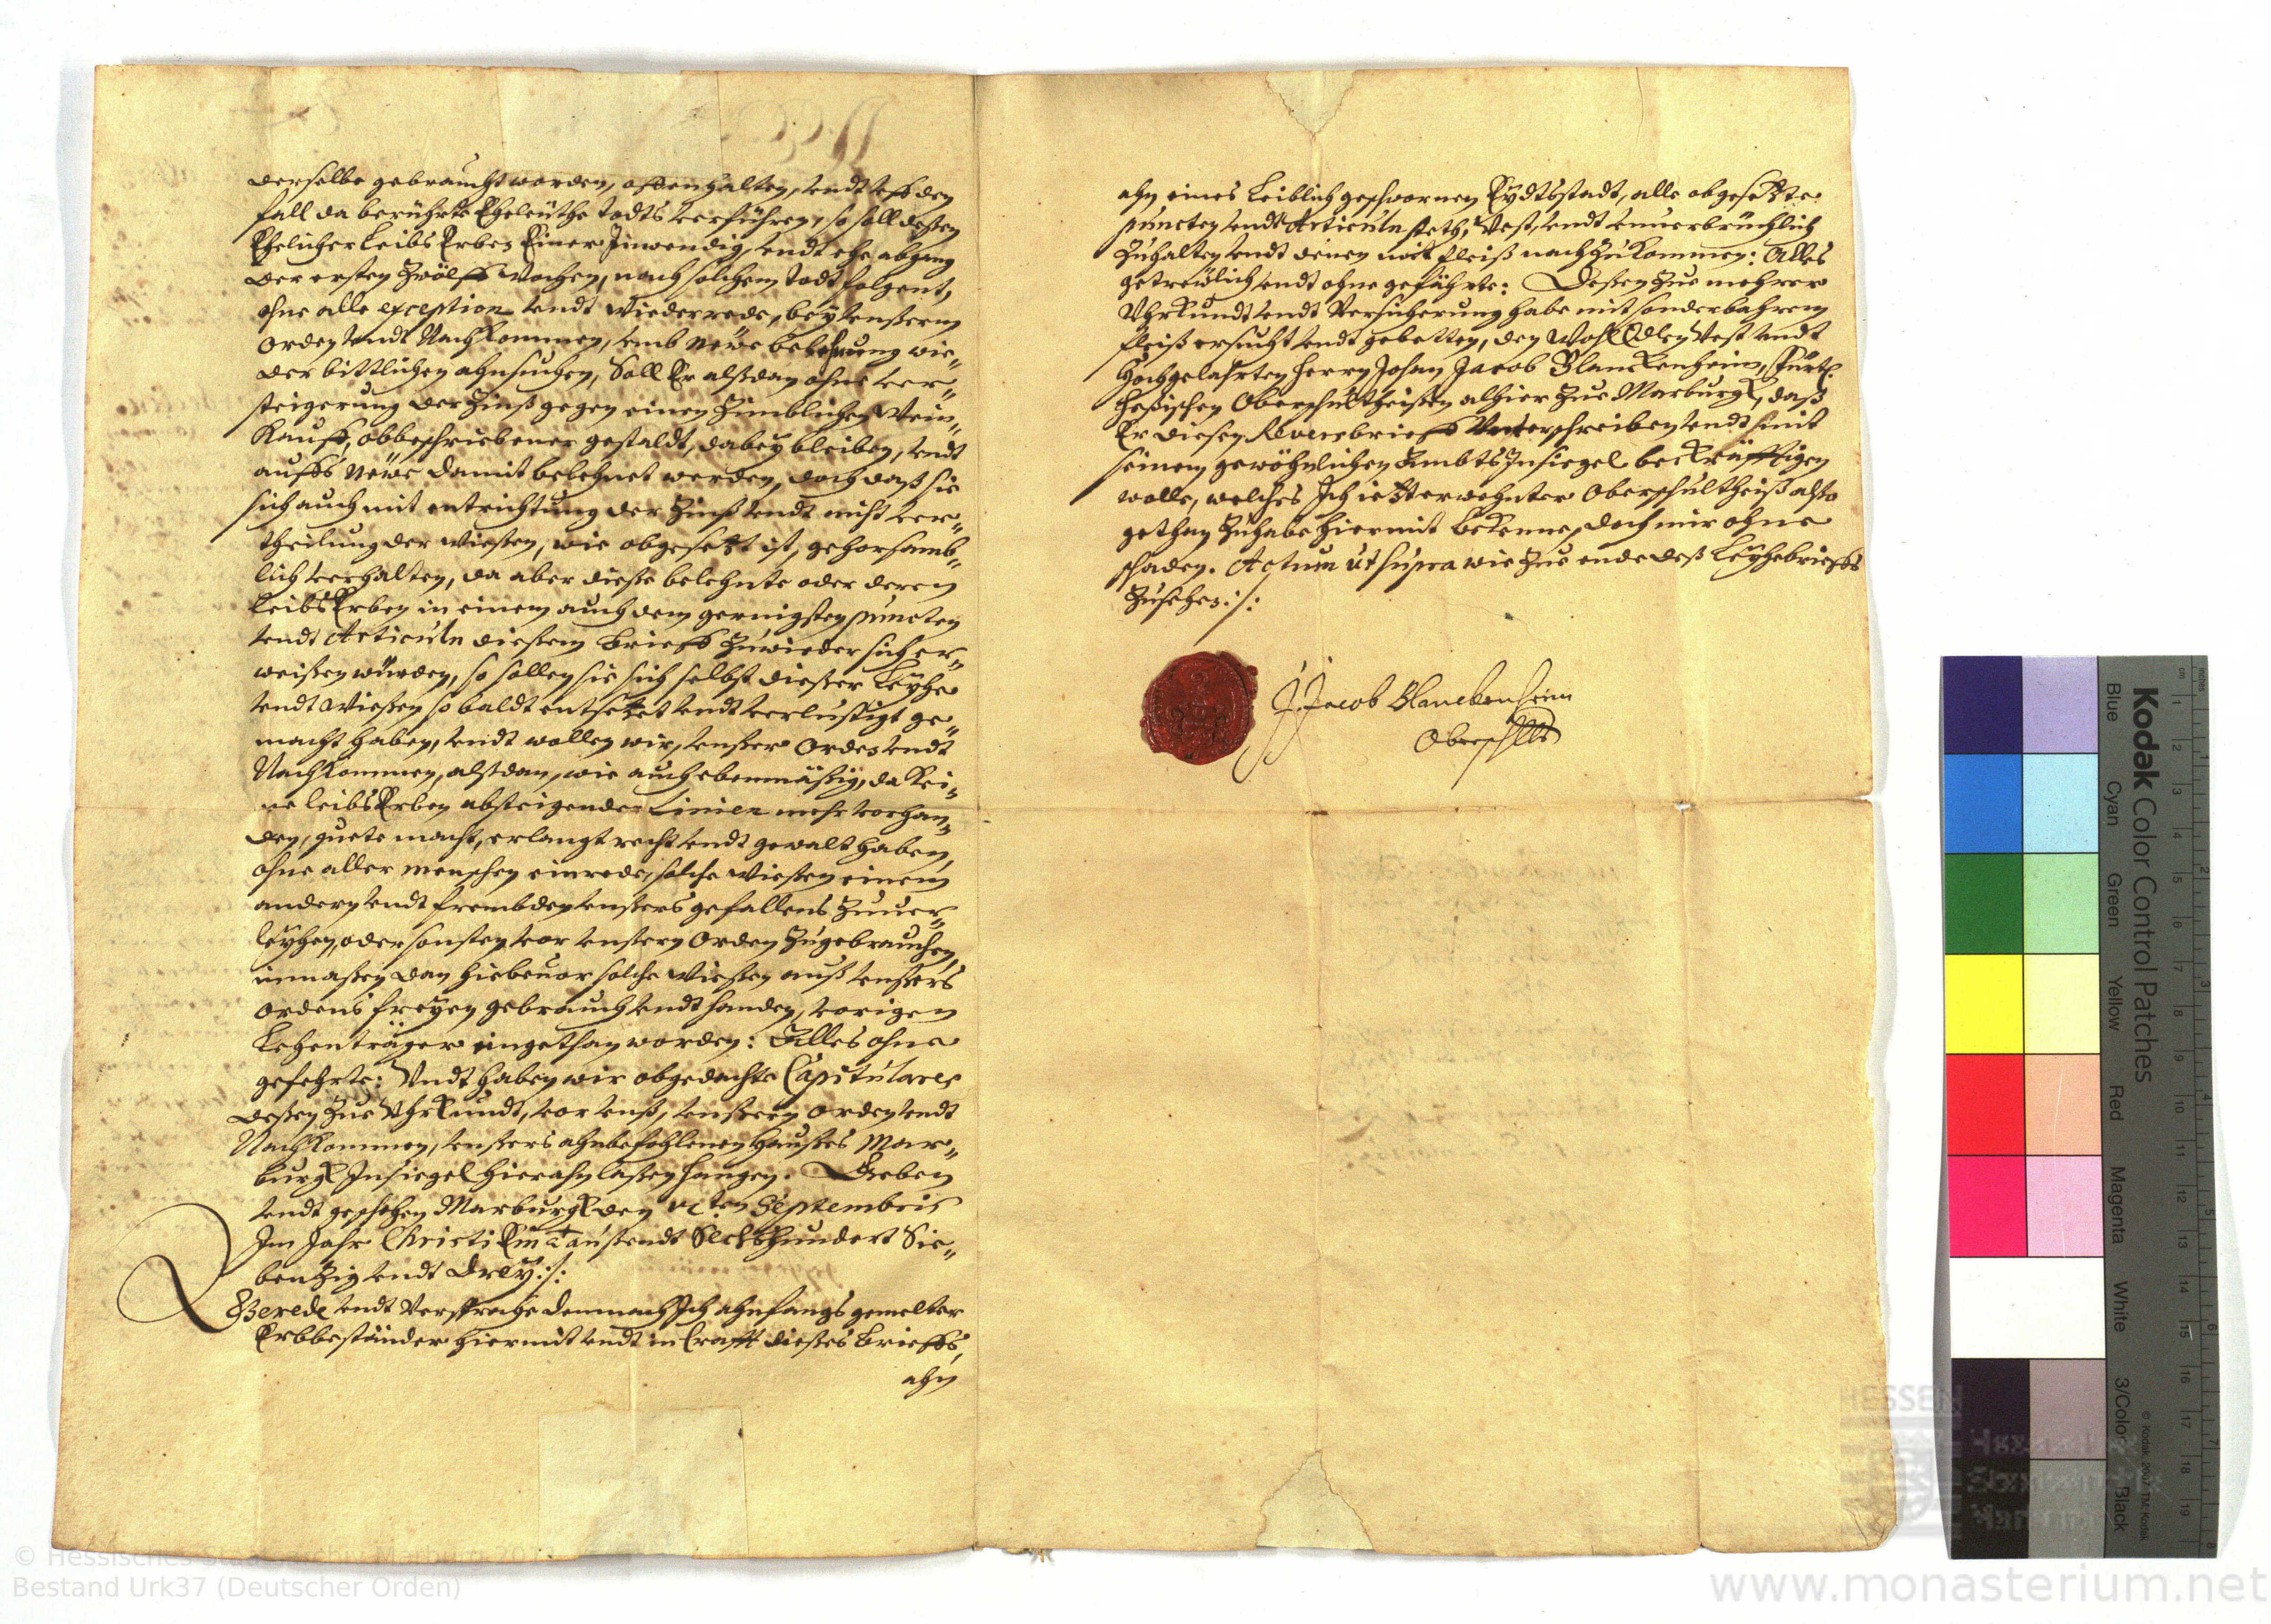 derselbe gebraucht worden, offenhalten, undt uff den
fall da berührte Eheleüthe todts verführen, so soll deßen
Ehelicher Leibs Erben Einer Inwendig, undt ehe abgang
der ersten Zwölff Wochen, nach solchem todt folgent,
ohne alle exception undt Wiederrede, bey unßerm
Orden undt Nachkommen, umb newe belehnung wie„
der bittlichen ahnsuchen, Soll Er alßdan ohne ver„
steigerung der Zinß gegen einen Zimblichen Wein„
Kauff, obbeschriebener gestaldt, dabey bleiben, undt
auffs newe damit belehnet werden, doch daß sie
sich auch mit entrichtung der Zinß undt nicht ver„
theilung der Wießen, wie obgesetzt ist, gehorsamb„
lich verhalten, da aber dieße belehnte oder deren
Leibs Erben in einem auch dem geringsten puncten
undt Articuln dießem Brieff Zuwieder sich er„
weißen würden, so sollen sie sich selbst dießer Leyhe
undt Wießen so baldt entsetzet undt verlustigt ge„
macht haben, undt wollen wir, unßer Orden undt
Nachkommen, alßdan, wie auch ebenmäßig, da kei„
ne leibs Erben absteigender Linien mehr vorhan„
den, guete macht, erlangt recht undt gewalt haben,
ohne aller menschen einrede, solche Wießen einem
andern undt frembden unßers gefallens Zuver„
leyhen, oder sonsten vor unßern Orden Zugebrauchen,
inmaßen dan hiebevor solche Wießen auß unßers
Ordens freyen gebrauch undt handen, vorigen
Lehenträger eingethan worden: Alles ohne
gefehrte: Undt haben wir obgedachte Capitulares
deßen Zue Uhrkundt, vor unß, unßern Orden undt
Nachkommen, unßers ahnbefohlenen Haußes Mar„
burgk Insiegel hieran laßen hangen. Geben
undt geschehen Marburgk den ten Septembris
Im Jahr Christi Ein Taußendt Sechshundert Sie„
benzig undt Drey:/:
Gerede undt Verspreche demnach Ich ahnfangs gemelter
Erbbeständer hiermit undt in Crafft dießes Brieffs,
ahn
ahn eines Leiblich geschwornen Eydtsstadt, alle obgesetzte
puncten undt Articuln steth, Vest, undt unverbrüchlich
Zuhalten undt denen mit fleiß nachzukommen: Alles
getrewlich undt ohne gefährte: Deßen Zue mehrer
Uhrkundt undt Versicherung habe mit sonderbahrem
fleiß ersucht undt gebetten, den WohlEdlen Vest undt
Hochgelahrten Herrn Johan Jacob Blanckenheim, Fürstl.
Heßischen Oberschultheißen alhier Zue Marburgk, daß
Er diesen Reversbrieff Unterschreiben undt mit
seinem gewöhnlichen AmbtsInsiegel bekräfftigen
wolle, welches Ich ietzt erwehnter Oberschultheiß also
gethan Zuhabe hiermit bekenne, doch mir ohne
schaden. Actum ut supra wie Zue ende deß Leyhebrieffs
Zusehen:/:
J. Jacob Blanckenheim
Oberschlths
Kodak Color Control Patches
Blue Cyan Green Yellow Red Magenta White 3/Color Black
© Kodak, 2007 TM: Kodak
HESSEN
© Hessisches Staatsarchiv Marburg 2013
Bestand Urk37 (Deutscher Orden)
www.monasterium.net